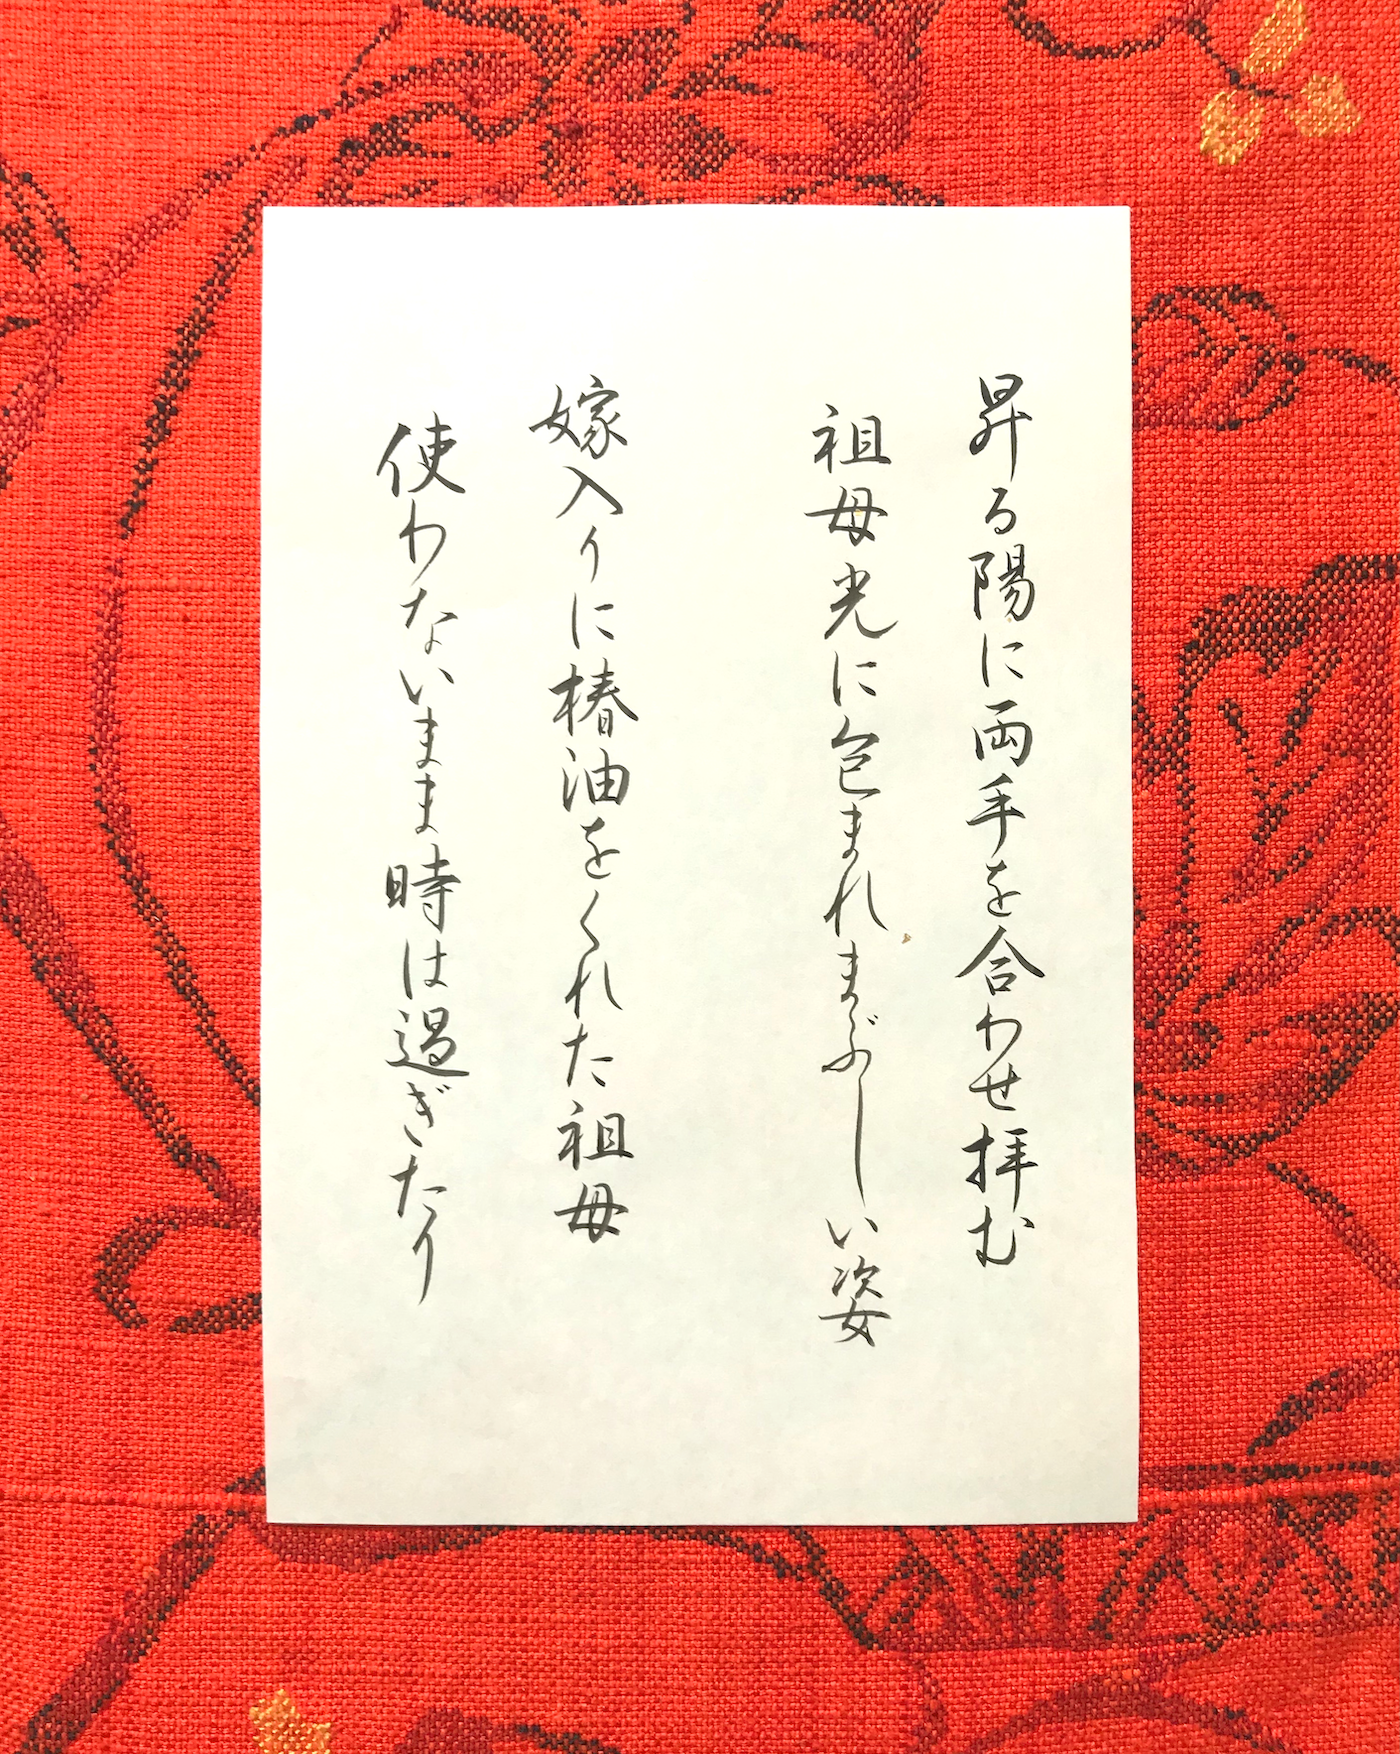 昇る陽に両手を合わせ拝む
祖母光に包まれまぶしい姿
嫁入りに椿油をくれた祖母
使わないまま時は過ぎたり